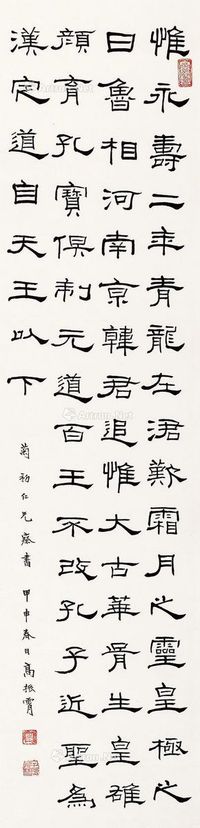 惟永壽二年青龍左涒歎霜月之靈皇極之
日魯相河南京韓君追惟大古華胥生皇雄
顏育孔寶俱制元道百王不改孔子近聖為
漢定道自天王以下
菊初仁兄書 甲申春日高振霄
Artron.Net